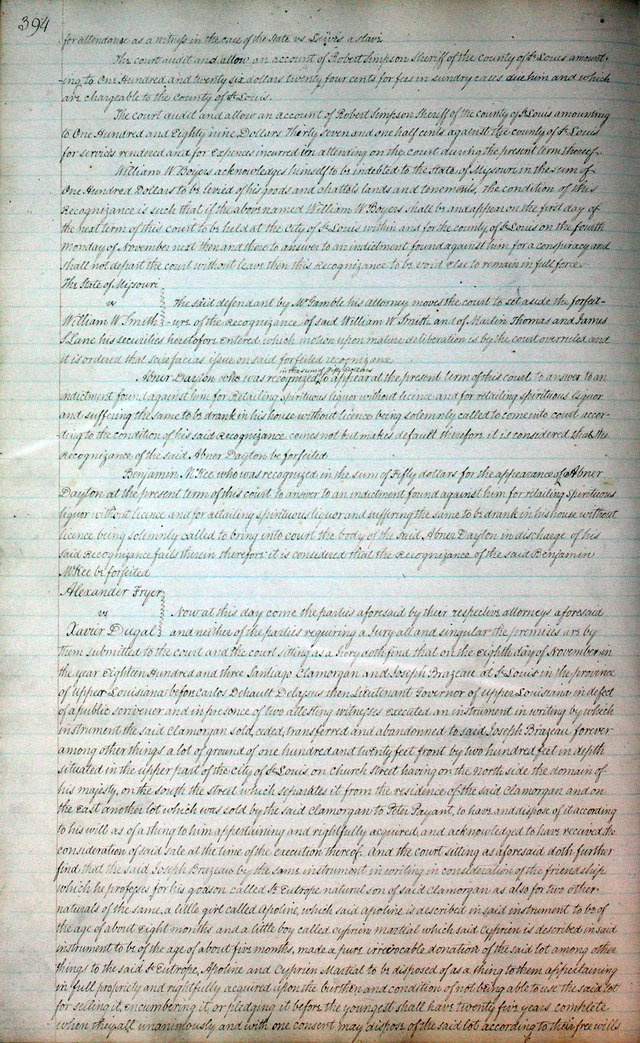 394
for attendance as a witness in the case of the State vs Louis a slave
The court audit and allow an account of Robert Simpson Sheriff of the county of St Louis amount-
-ing to One Hundred and twenty six dollars twenty four cents for fees in sundry cases due him and which
are chargeable to the County of St Louis.
The court audit and allow an account of Robert Simpson Sheriff of the county of St Louis amounting
to One Hundred and Eighty nine Dollars Thirty seven and one half cents against the county of St Louis
for services rendered and for Expences incurred in attending on the court during the present term thereof
William W Boyers acknowledges himself to be indebted to the State of Missouri in the sum of
One Hundred Dollars to be levied of his goods and chattels lands and tenements, the condition of this
Recognizance is such that if the above named William W Boyers shall be and appear on the first day of
the next term of this court to be held at the City of St Louis within and for the county of St Louis on the fourth
monday of November next then and there to answer to an indictment found against him for a conspiracy and
shall not depart the court without leave then this Recognizance to be void else to remain in full force
The State of Missouri
vs the said defendant by Mr Gamble his attorney moves the court to set aside the forfeit-
William W Smith -ure of the Recognizance of said William W Smith and of Martin Thomas and James
S Lane his securities heretofore entered which motion upon mature deliberation is by the court overruled and
it is ordered that scire facias issue on said forfeited recognizance
in the sum of fifty Dollars
Abner Dayton who was recognized to appear at the present term of this court to answer to an
indictment found against him for Retailing spirituous liquor without licence and for retailing spirituous liquor
and suffering the same to be drank in his house without licence being solemnly called to come into court accor-
ding to the condition of his said Recognizance comes not but makes default therefore it is considered that the
Recognizance of the said Abner Dayton be forfeited
Benjamin McKee who was recognized in the sum of Fifty dollars for the appearance of Abner
Dayton at the present term of this court to answer to an indictment found against him for retailing spirituous
liquor without licence and for retailing spirituous liquor and suffering the same to be drank in his house without
licence being solemnly called to bring into court the body of the said Abner Dayton in discharge of his
said Recognizance fails therein therefore it is considered that the Recognizance of the said Benjamin
McKee be forfeited
Alexander Fryer
vs Now at this day come the parties aforesaid by their respective attorneys aforesaid
Xavier Dugal and neither of the parties requiring a Jury all and singular the premises are by
them submitted to the court and the court sitting as a Jury doth find that on the eighth day of November in
the year Eighteen Hundred and three Santiago Clamorgan and Joseph Brazeau at St Louis in the province
of Upper Louisiana before Carlos Dehault Delassus then Lieutenant Governor of Upper Louisiana in defect
of a public scrivener and in presence of two attesting witnesses executed an instrument in writing by which
instrument the said Clamorgan sold, ceded, transferred and abandonned to said Joseph Brazeau forever
among other things a lot of ground of one hundred and twenty feet front by two hundred feet in depth
situated in the upper part of the city of St Louis on church Street having on the North side the domain of
his majesty, on the south the street which separates it from the residence of the said Clamorgan and on
the East another lot which was sold by the said Clamorgan to Peter Payant, to have and dispose of it according
to his will as of a thing to him appertaining and rightfully acquired, and acknowledged to have received the
consideration of said sale at the time of the execution thereof. And the court sitting as aforesaid doth further
find that the said Joseph Brazeau by the same instrument in writing in consideration of the friendship
which he professes for his godson called St Eutrope natural son of said Clamorgan as also for two other
naturals of the same, a little girl called Apoline, which said Apoline is described in said instrument to be of
the age of about eight months and a little boy called Cyprien Martial which said Cyprien is described in said
instrument to be of the age of about five months, made a pure irrevocable donation of the said lot among other
things to the said St Eutrope, Apoline and Cyprien Martial to be disposed of as a thing to them appertaining
in full propriety and rightfully acquired upon the burthen and condition of not being able to use the said lot
for selling it, encumbering it or pledging it before the youngest shall have twenty five years complete
when they all unanimously and with one consent may dispose of the said lot according to their free wills